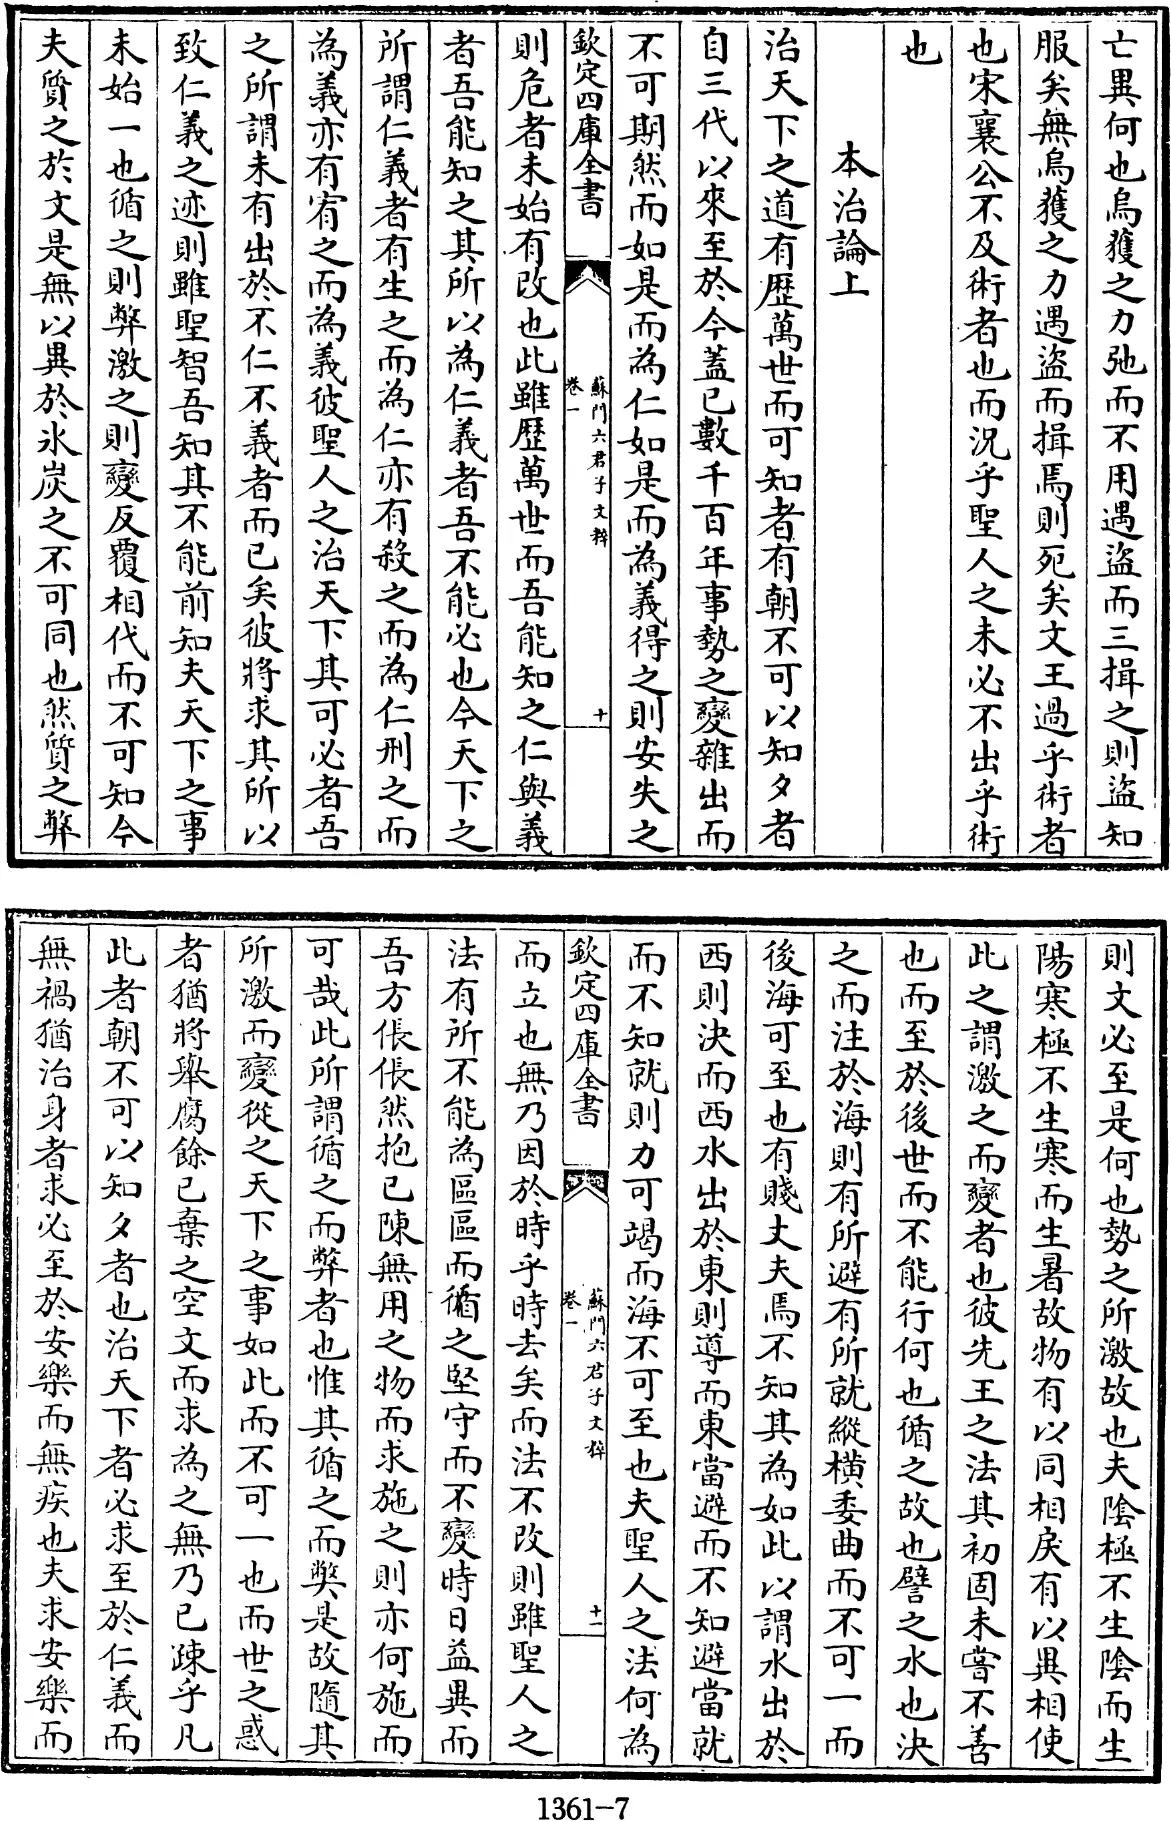 亡異何也烏獲之力弛而不用遇盜而三揖之則盜知
服矣無烏獲之力遇盜而揖焉則死矣文王過乎術者
也宋襄公不及術者也而況乎聖人之未必不出乎術
也
本治論上
治天下之道有歷萬世而可知者有朝不可以知夕者
自三代以來至於今蓋已數千百年事勢之變雜出而
不可期然而如是而為仁如是而為義得之則安失之
欽定四庫全書
蘇門六君子文粹
卷一
十
則危者未始有改也此雖歷萬世而吾能知之仁與義
者吾能知之其所以為仁義者吾不能必也今天下之
所謂仁義者有生之而為仁亦有殺之而為仁刑之而
為義亦有宥之而為義彼聖人之治天下其可必者吾
之所謂未有出於不仁不義者而已矣彼將求其所以
致仁義之迹則雖聖智吾知其不能前知夫天下之事
未始一也循之則弊激之則變反覆相代而不可知今
夫質之於文是無以異於氷炭之不可同也然質之弊
則文必至是何也勢之所激故也夫陰極不生陰而生
陽寒極不生寒而生暑故物有以同相戾有以異相使
此之謂激之而變者也彼先王之法其初固未嘗不善
也而至於後世而不能行何也循之故也譬之水也決
之而注於海則有所避有所就縱橫委曲而不可一而
後海可至也有賤丈夫焉不知其為如此以謂水出於
西則決而西水出於東則導而東當避而不知避當就
而不知就則力可竭而海不可至也夫聖人之法何為
欽定四庫全書
蘇門六君子文粹
卷一
十一
而立也無乃因於時乎時去矣而法不改則雖聖人之
法有所不能為區區而循之堅守而不變時日益異而
吾方倀倀然抱已陳無用之物而求施之則亦何施而
可哉此所謂循之而弊者也惟其循之而弊是故隨其
所激而變從之天下之事如此而不可一也而世之惑
者猶將舉腐餘已棄之空文而求為之無乃已疎乎凡
此者朝不可以知夕者也治天下者必求至於仁義而
無禍猶治身者求必至於安樂而無疾也夫求安樂而
1361-7